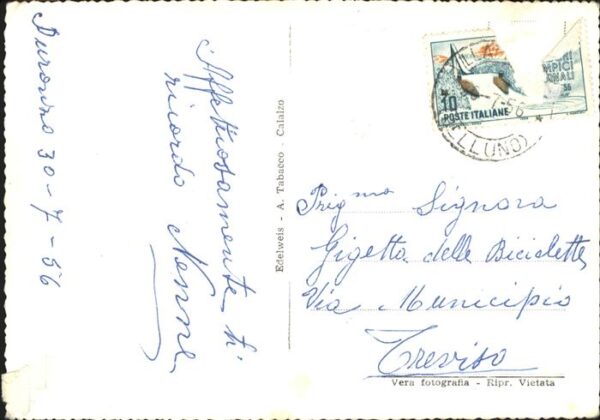 Auronzo 30-7-56
Affettuosamente ti
ricordo
Edelweis - A. Tabacco - Calalzo
10
POSTE ITALIANE
7-56
(BELLUNO)
Preg.ma Signora
Gigetta delle Biciclette
Via Municipio
Treviso
Vera fotografia - Ripr. Vietata